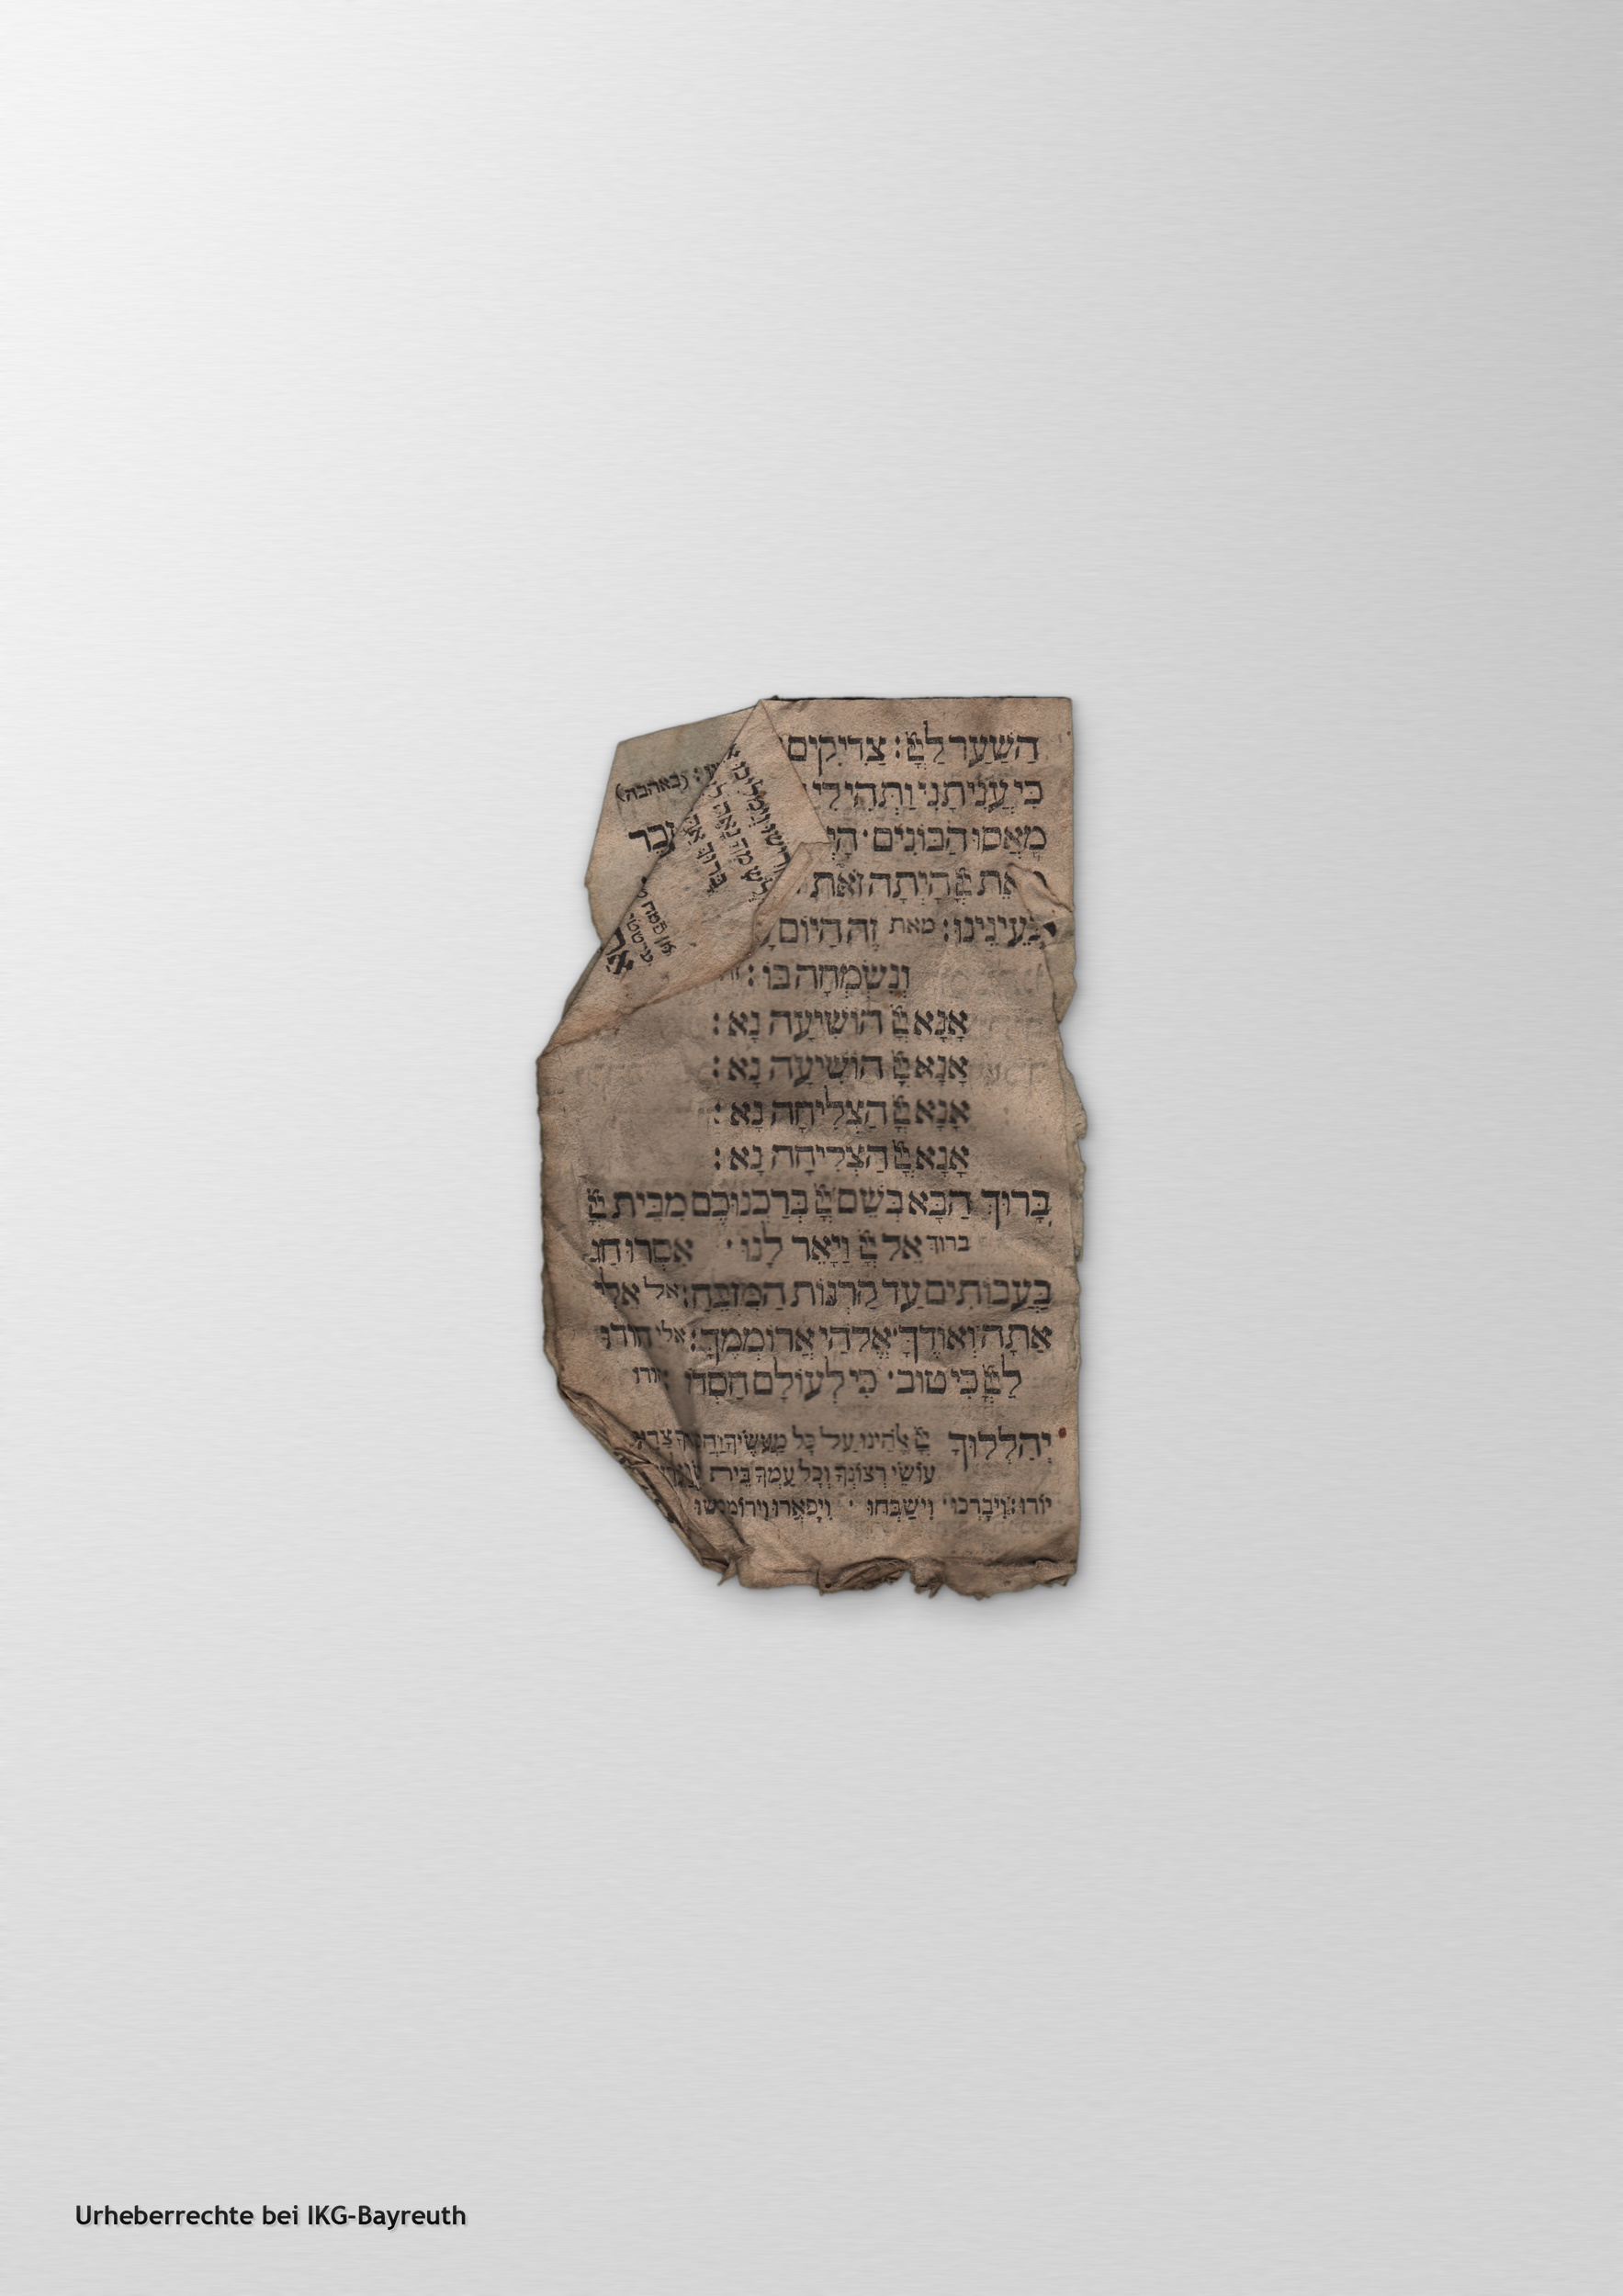 הַשַּׁעַר לַיְיָ: צַדִּיקִים
כִּי עֲנִיתָנִי וַתְּהִי לִי
מָאֲסוּ הַבּוֹנִים· הָיְ
מֵאֵת יְיָ הָיְתָה זֹּאת·
בְּעֵינֵינוּ: מאת זֶה הַיּוֹם
וְנִשְׂמְחָה בוֹ: זה
אָנָּא יְיָ הוֹשִׁיעָה נָּא:
אָנָּא יְיָ הוֹשִׁיעָה נָּא:
אָנָּא יְיָ הַצְלִיחָה נָּא:
אָנָּא יְיָ הַצְלִיחָה נָּא:
בָּרוּךְ הַבָּא בְּשֵׁם יְיָ בֵּרַכְנוּכֶם מִבֵּית יְיָ
ברוך אֵל יְיָ וַיָּאֶר לָנוּ· אִסְרוּ חַג
בַּעֲבוֹתִים עַד קַרְנוֹת הַמִּזְבֵּחַ: אל אֵלִי
אַתָּה וְאוֹדֶךָּ· אֱלֹהַי אֲרוֹמְמֶךָּ: אלי הוֹדוּ
לַיְיָ כִּי טוֹב· כִּי לְעוֹלָם חַסְדּוֹ הודו
יְהַלְלוּךָ יְיָ אֱלֹהֵינוּ עַל כָּל מַעֲשֶׂיךָ
עוֹשֵׂי רְצוֹנֶךָ וְכָל עַמְּךָ בֵּית
יוֹדוּ: וִיבָרְכוּ· וִישַׁבְּחוּ· וִיפָאֲרוּ וִירוֹמְמוּ
(באהבה)
זֵכֶר
Urheberrechte bei IKG-Bayreuth